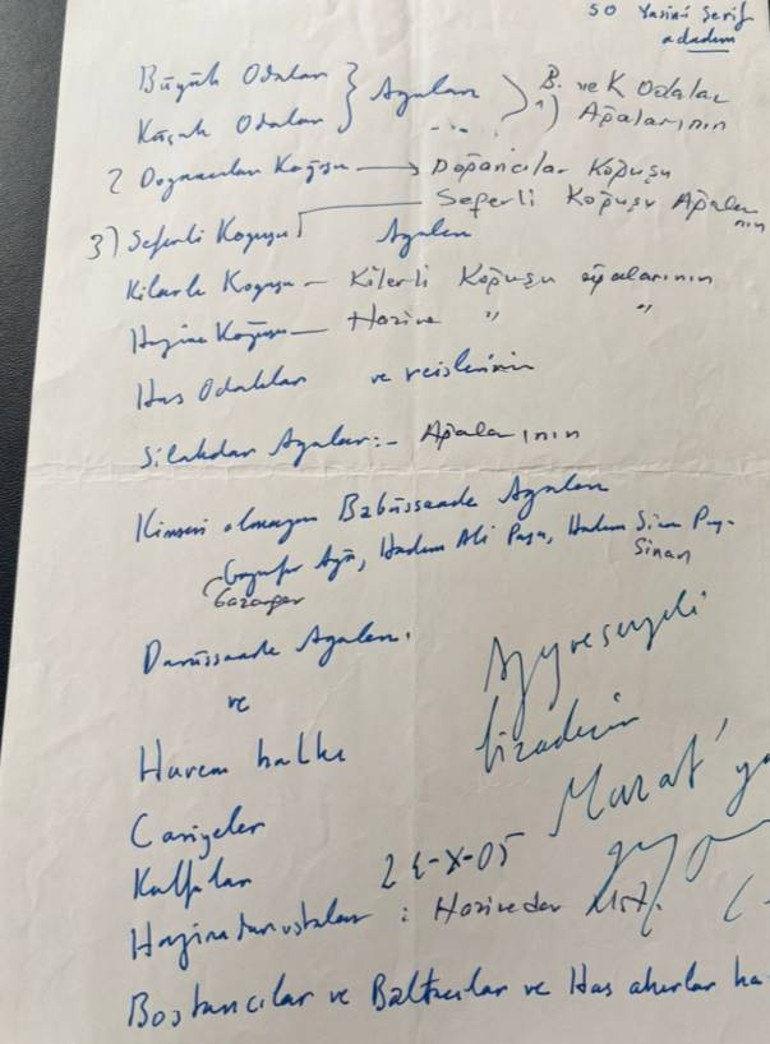 50 Yasini Şerif
adadım
Büyük Odaları } Ağaları > B. ve K Odalar
Küçük Odaları 1) Ağalarının
2 Doğancıları Koğuşu → Doğancılar Koğuşu
Seferli Koğuşu Ağaları
nın
3) Seferli Koğuşu Ağaları
Kilerli Koğuşu – Kilerli Koğuşu ağalarının
Hazine Koğuşu — Hazine " "
Has Odalılar ve reislerinin
Silahdar Ağalar:- Ağalarının
Kimsesi olmayan Babüssaade Ağaları
Gazanfer Ağa, Hadım Ali Paşa, Hadım Sinan Paşa
Sinan
Gazanfer
Darüssaade Ağaları.
ve
Harem halkı
Cariyeler
Kalfalar
2 -X-05
Murat'
Hazinedar ustalar : Hazinedar Ust.
Bostancılar ve Baltacılar ve Has ahırlar ha